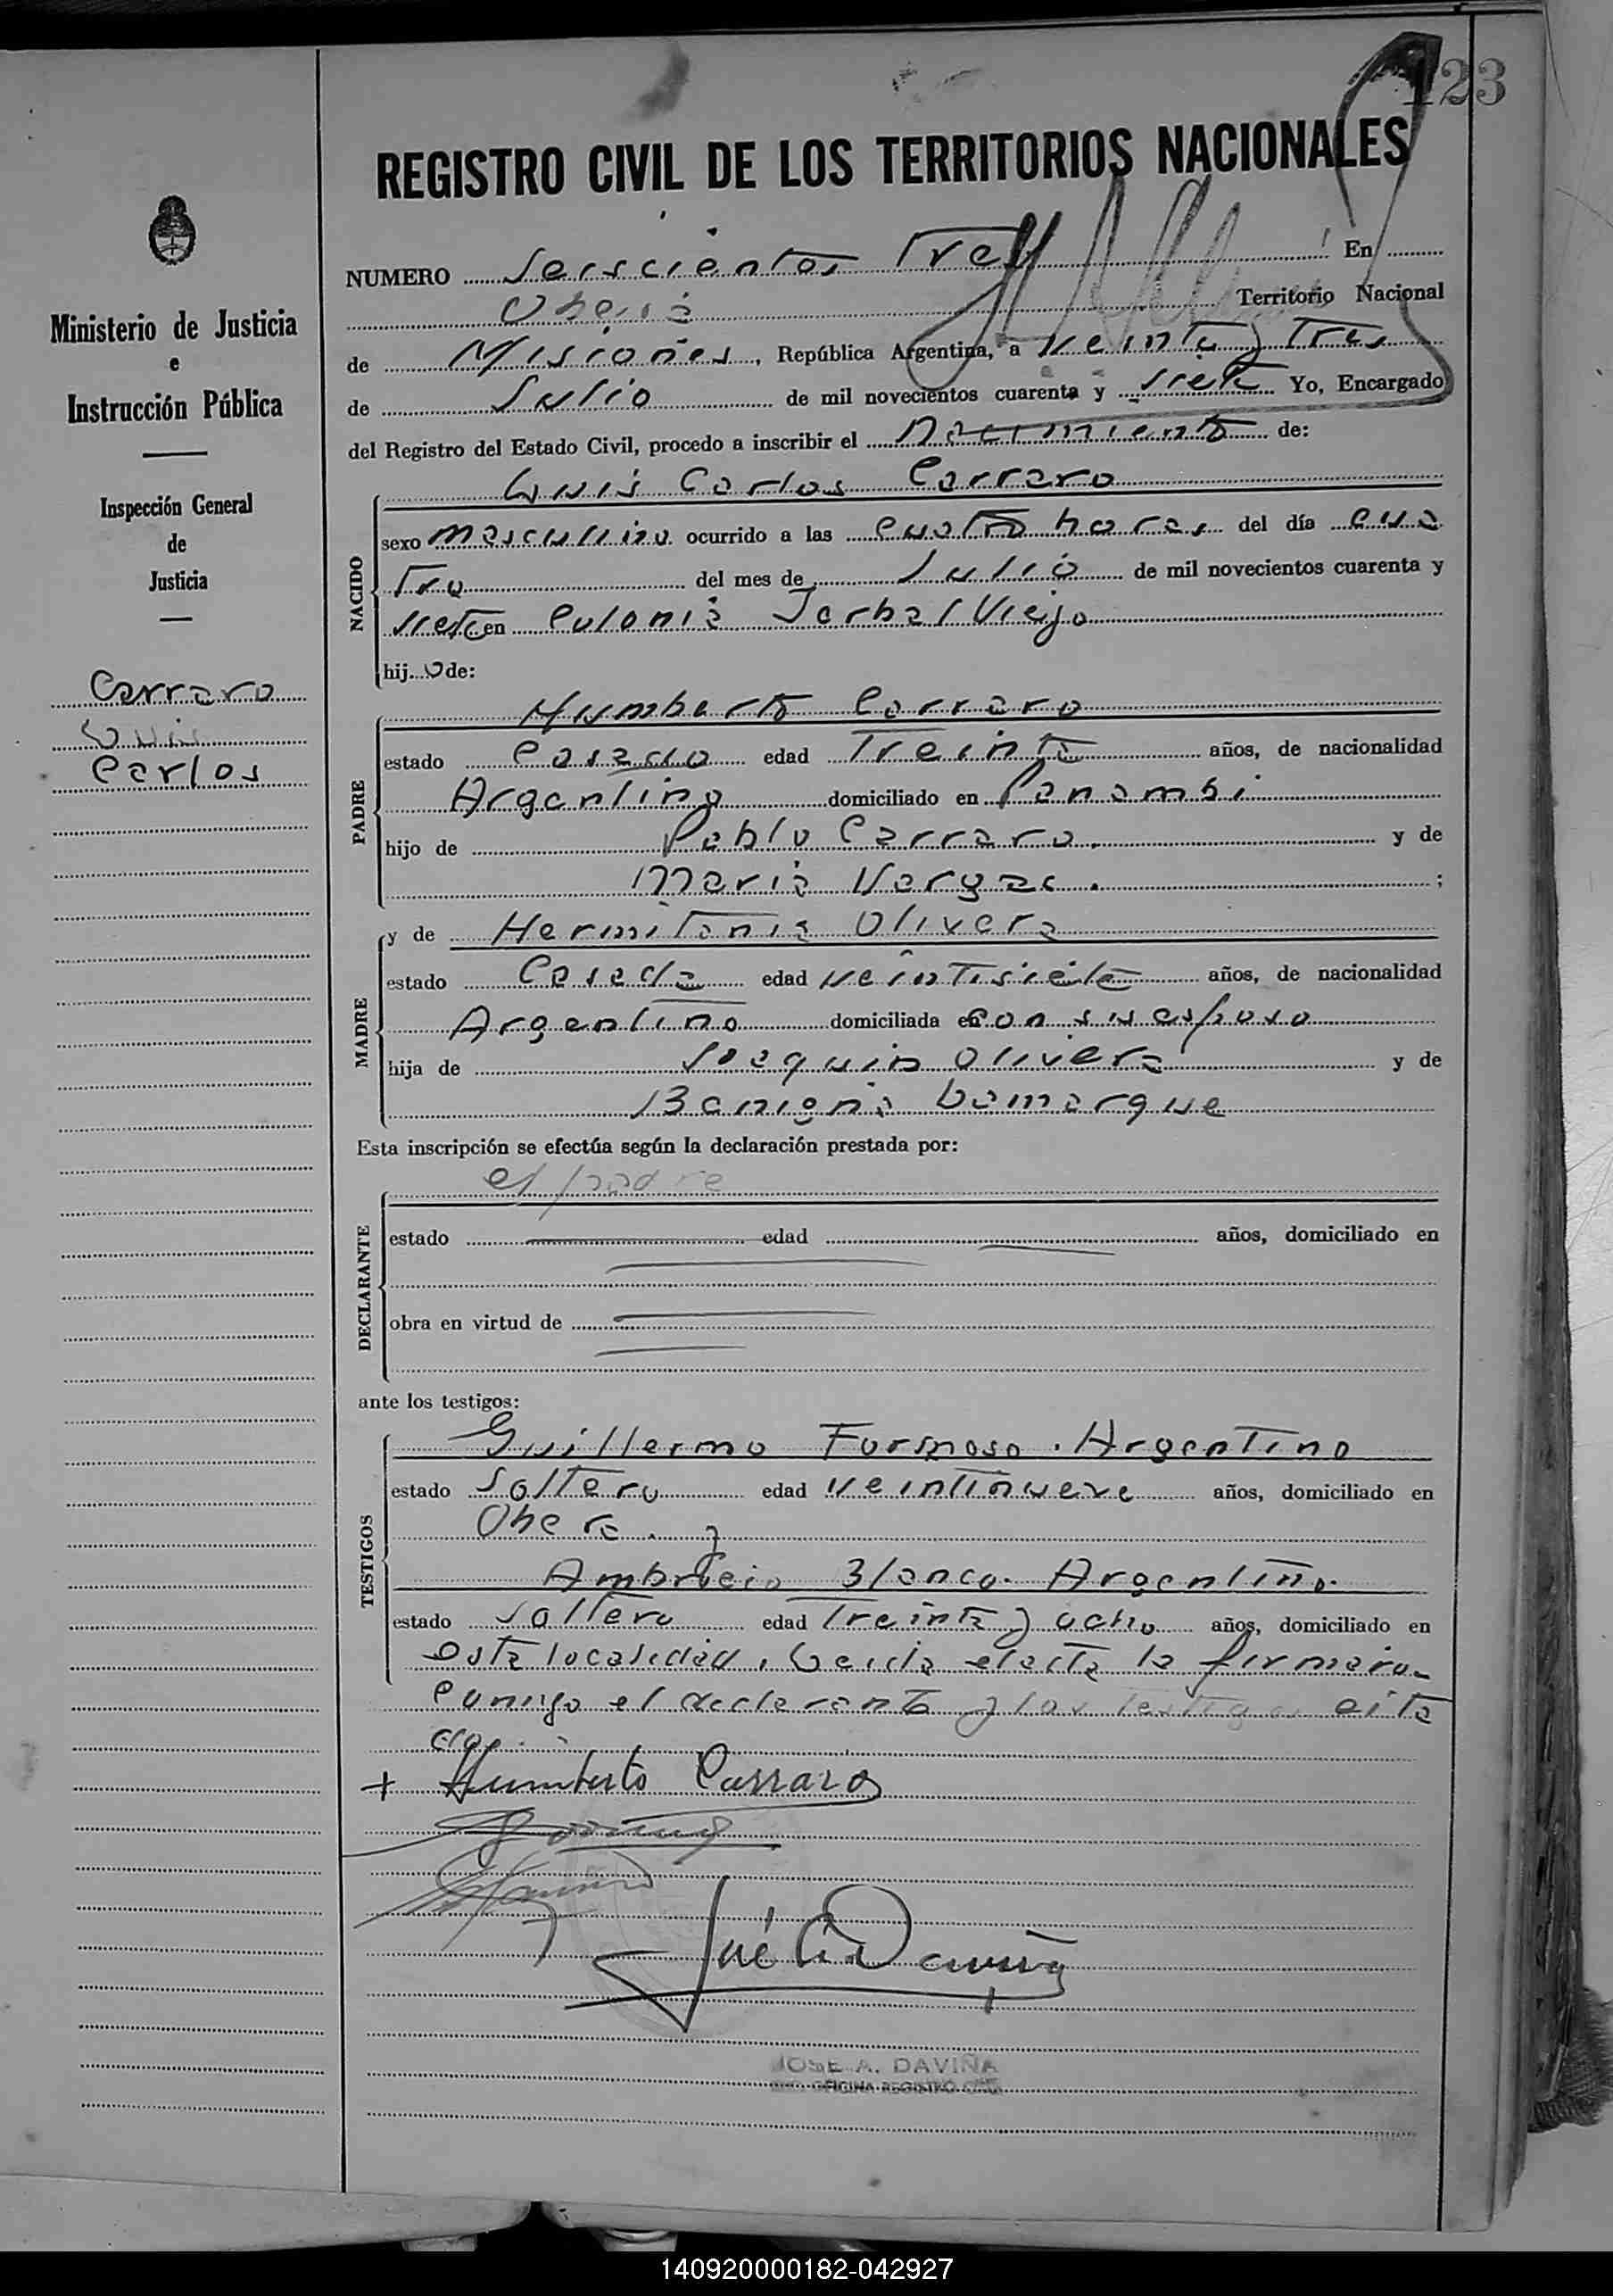 123
REGISTRO CIVIL DE LOS TERRITORIOS NACIONALES
NUMERO Seiscientos Tres En
Oberá Territorio Nacional
de Misiones, República Argentina, a Veinte y Tres
de Julio de mil novecientos cuarenta y siete Yo, Encargado
del Registro del Estado Civil, procedo a inscribir el Nacimiento de:
Luis Carlos Carraro
sexo masculino ocurrido a las cuatro horas del día cua
tro del mes de Julio de mil novecientos cuarenta y
siete en Colonia Yerbal Viejo
hijo de:
NACIDO
Humberto Carraro
estado Casado edad Treinta años, de nacionalidad
Argentino domiciliado en Panambi
hijo de Pablo Carraro y de
Maria Vargas.;
PADRE
y de Hermitania Olivera
estado Casada edad veintisiete años, de nacionalidad
Argentino domiciliada en con su esposo
hija de Joaquin Olivera y de
Benigna Lamarque
MADRE
Esta inscripción se efectúa según la declaración prestada por:
el padre
estado edad años, domiciliado en
obra en virtud de
DECLARANTE
ante los testigos:
Guillermo Formoso. Argentino
estado Soltero edad veintinueve años, domiciliado en
Obera. y
Blanco. Argentino.
estado Soltero edad Treinta y ocho años, domiciliado en
esta localidad. Leida el acta la firmaron
conmigo el declarante y los testigos cita
dos
TESTIGOS
+ Humberto Carraro
José A. Daviña
JOSE A. DAVIÑA
OFICINA REGISTRO CIVIL
Ministerio de Justicia
e
Instrucción Pública
Inspección General
de
Justicia
Carraro
Luis
Carlos
140920000182-042927